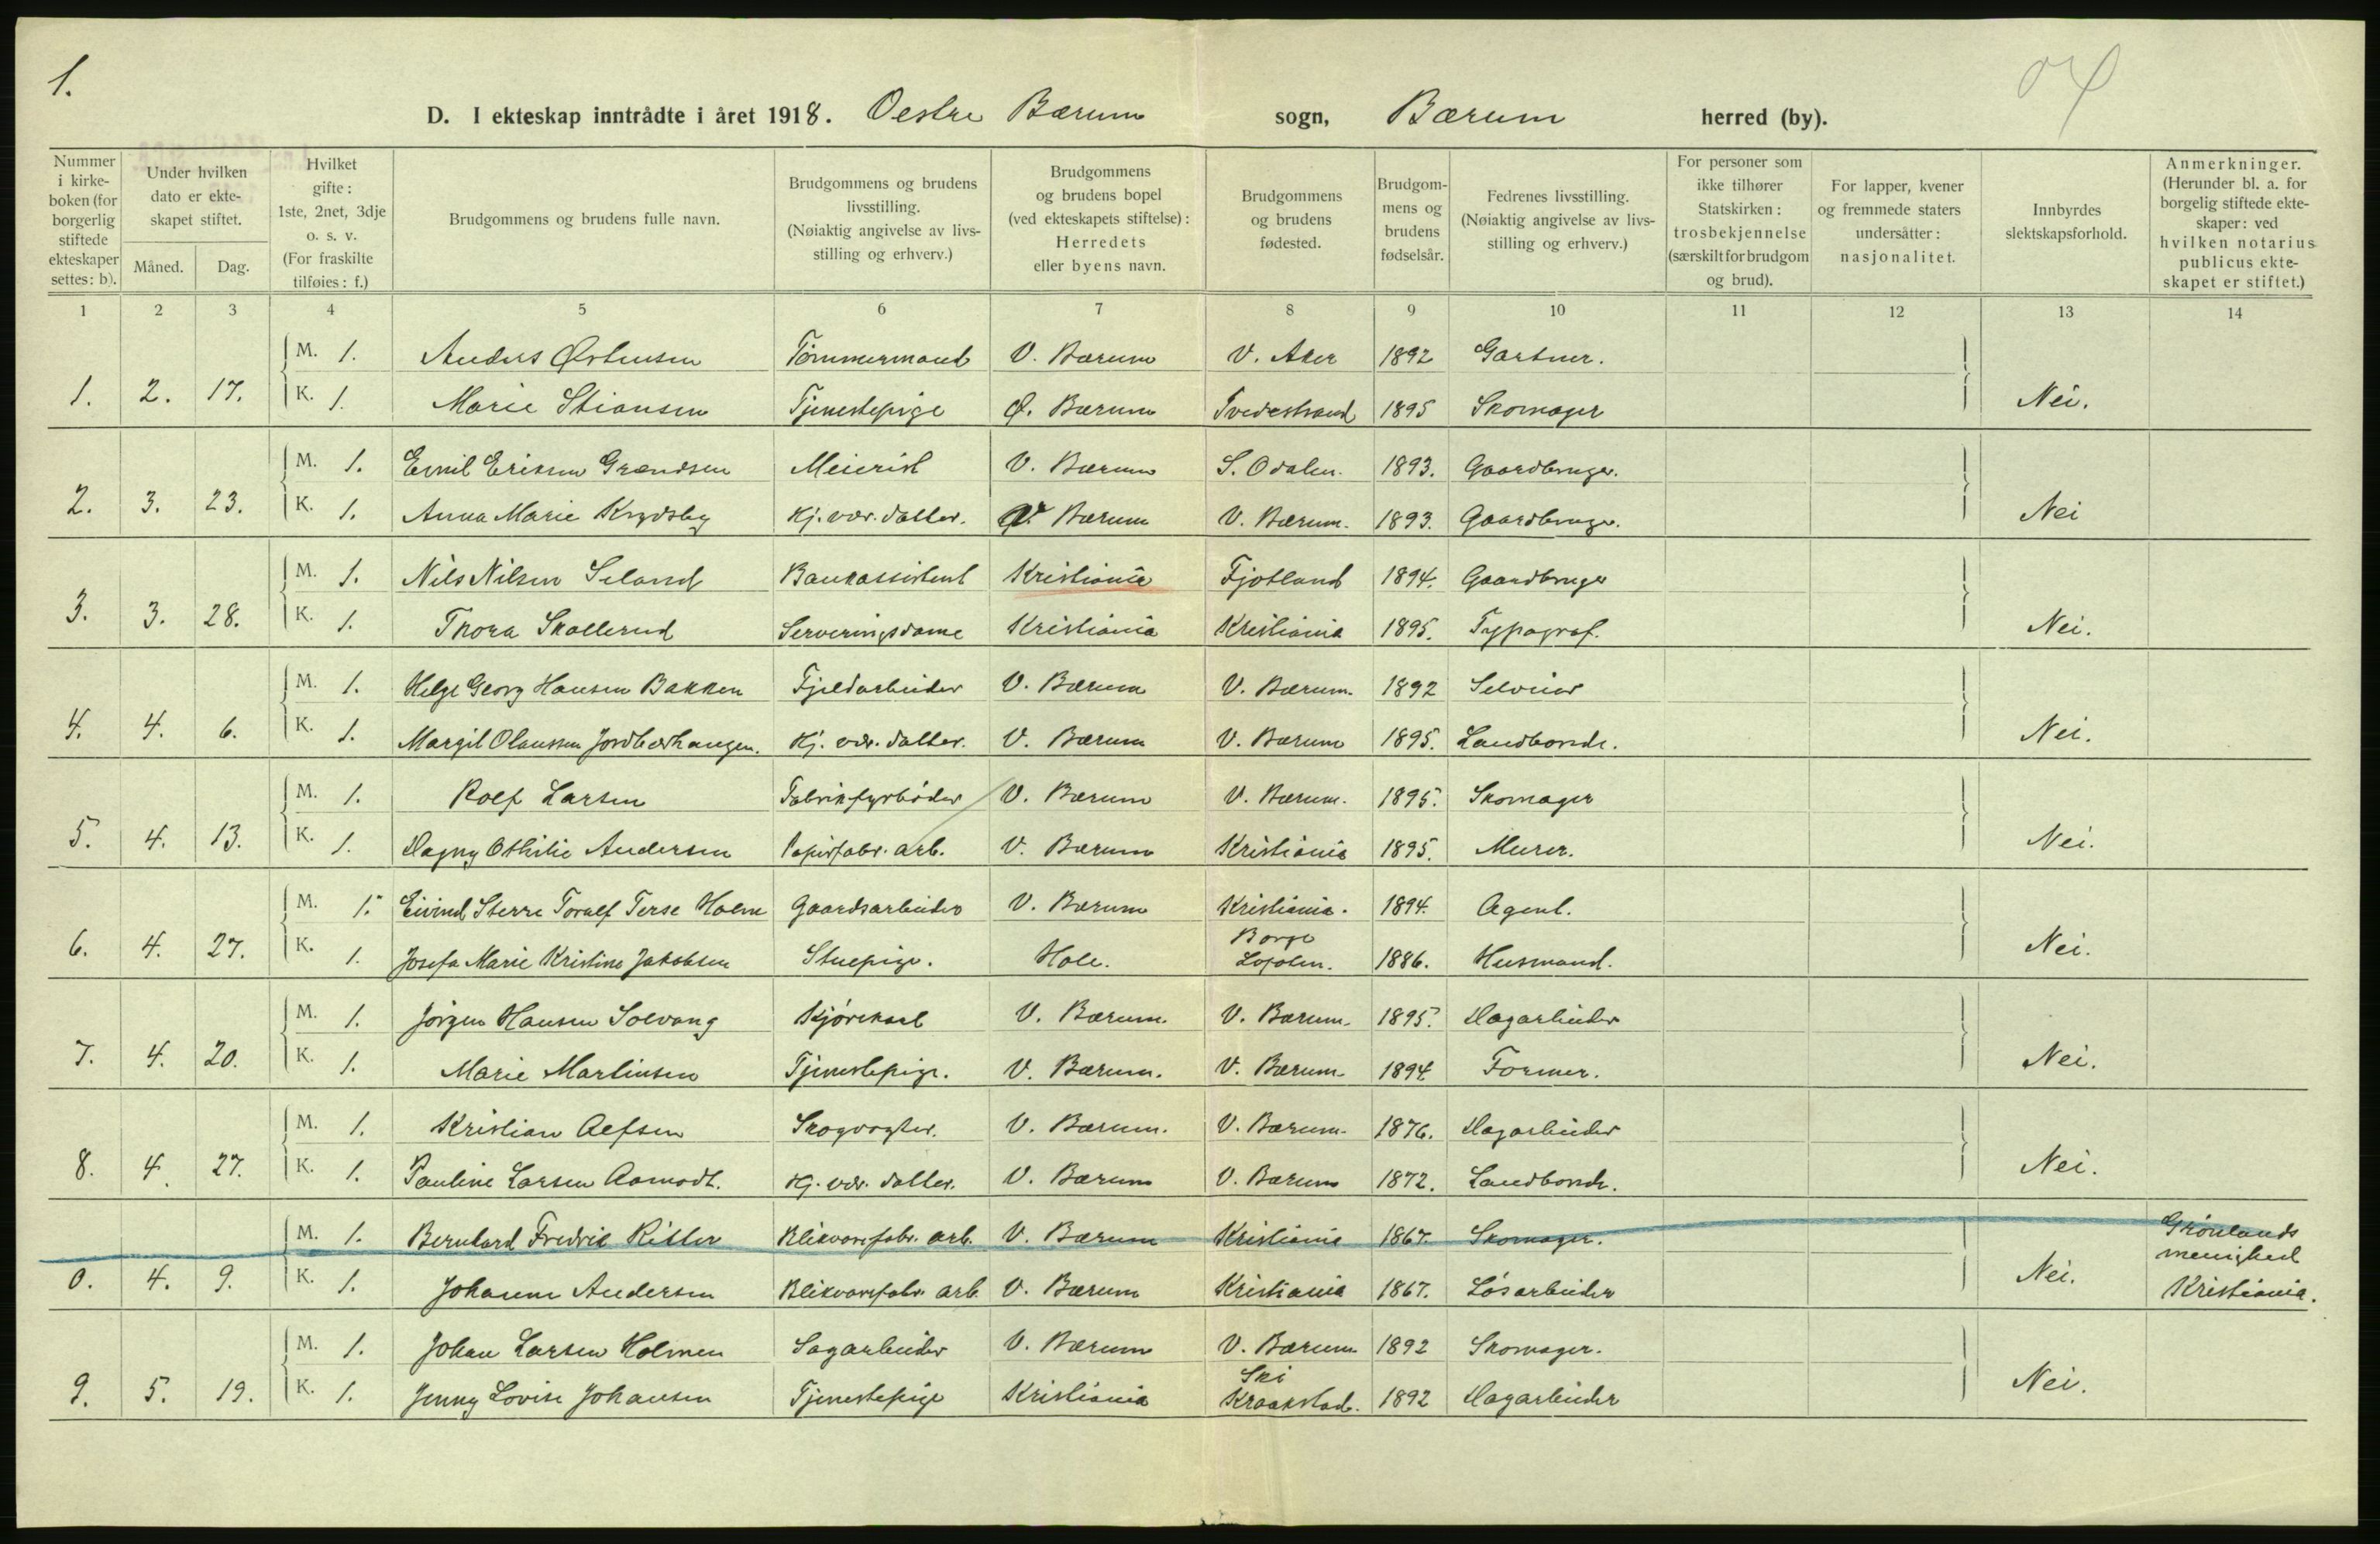 1.
D. I ekteskap inntrådte i året 1918. Oestre Bærum sogn, Bærum herred (by).
Nummer i kirkeboken (for borgerlig stiftede ekteskaper settes: b).
Under hvilken dato er ekteskapet stiftet.
Måned. Dag.
Hvilket gifte: 1ste, 2net, 3dje o. s. v. (For fraskilte tilføies: f.)
Brudgommens og brudens fulle navn.
Brudgommens og brudens livsstilling. (Nøiaktig angivelse av livsstilling og erhverv.)
Brudgommens og brudens bopel (ved ekteskapets stiftelse): Herredets eller byens navn.
Brudgommens og brudens fødested.
Brudgommens og brudens fødselsår.
Fedrenes livsstilling. (Nøiaktig angivelse av livsstilling og erhverv.)
For personer som ikke tilhører Statskirken: trosbekjennelse (særskilt for brudgom og brud).
For lapper, kvener og fremmede staters undersåtter: nasjonalitet.
Innbyrdes slektskapsforhold.
Anmerkninger. (Herunder bl. a. for borgelig stiftede ekteskaper: ved hvilken notarius publicus ekteskapet er stiftet.)
1 2 3 4 5 6 7 8 9 10 11 12 13 14
M. 1. Anders Østensen Tømmermand V. Bærum V. Aker 1892 Gartner.
1. 2. 17. K. 1. Marie Stiansen Tjenestepige Ø. Bærum Tvedestrand 1895 Skomager Nei.
M. 1. Emil Eriksen Grændsen Meierist V. Bærum S. Odalen. 1893. Gaardbruger.
2. 3. 23. K. 1. Anna Marie Krydsby Hj. vær. datter. V. Bærum V. Bærum. 1893. Gaardbruger. Nei
M. 1. Nils Nilsen Seland Bankassistent Kristiania Fjotland 1894. Gaardbruger
3. 3. 28. K. 1. Thora Skollerud Serveringsdame Kristiania Kristiania 1895. Typograf. Nei.
M. 1. Helge Georg Hansen Bakken Fjeldarbeider V. Bærum V. Bærum. 1892 Seleier
4. 4. 6. K. 1. Margit Olaussen Jordbærhaugen. Hj. vær. datter. V. Bærum V. Bærum 1895. Landbonde. Nei.
M. 1. Rolf Larsen Fabrikfyrbøder V. Bærum V. Bærum. 1895. Skomager
5. 4. 13. K. 1. Dagny Othilie Andersen Papirfabr. arb. V. Bærum Kristiania 1895. Murer. Nei.
M. 1. Eivind Sterre Toralf Terse Holm Gaardsarbeider V. Bærum Kristiania. 1894. Agent.
6. 4. 27. K. 1. Josefa Marie Kristine Jakobsen Stuepige. Hole. Borge Lofoten. 1886. Husmand. Nei.
M. 1. Jørgen Hansen Solvang Kjørekarl V. Bærum. V. Bærum. 1895. Dagarbeider
7. 4. 20. K. 1. Marie Martinsen Tjenestepige. V. Bærum. V. Bærum. 1894. Former. Nei.
M. 1. Kristian Alfsen Skogvogter. V. Bærum. V. Bærum. 1876. Dagarbeider
8. 4. 27. K. 1. Pauline Larsen Aamodt. Hj. vær. datter. V. Bærum V. Bærum 1872. Landbonde. Nei.
M. 1. Bernhard Fredrik Ritter Blikvarefabr. arb. V. Bærum Kristiania 1867. Skomager. Grønlands menighed
0. 4. 9. K. 1. Johanne Andersen Blikvarefabr. arb. V. Bærum Kristiania 1867. Løsarbeider Nei. Kristiania.
M. 1. Johan Larsen Holmen Sagarbeider V. Bærum V. Bærum 1892 Skomager.
9. 5. 19. K. 1. Jenny Lovise Johansen Tjenestepige Kristiania Ski Kraakstad. 1892 Dagarbeider Nei.